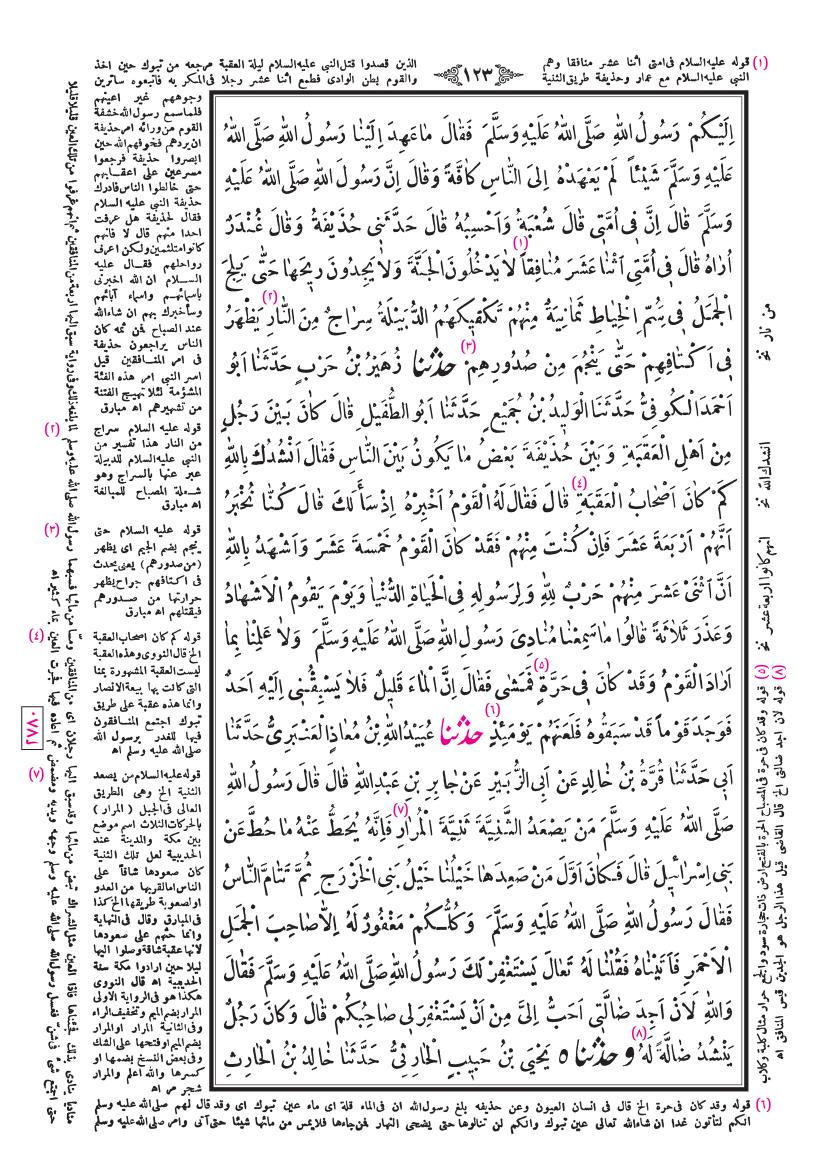 (١) قوله عليه السلام فى امتى اثنا عشر منافقا وهم
النبى عليه السلام مع عمار وحذيفة طريق الثنية
١٢٣
الذين قصدوا قتل النبى عليه السلام ليلة العقبة مرجعه من تبوك حين اخذ
والقوم ببطن الوادى فطمع اثنا عشر رجلا فى المكر به فاتبعوه ساترين
اِلَيْكُمْ رَسُولُ اللهِ صَلَّى اللهُ عَلَيْهِ وَسَلَّمَ فَقَالَ مَا عَهِدَ اِلَيْنَا رَسُولُ اللهِ صَلَّى اللهُ
عَلَيْهِ وَسَلَّمَ شَيْئاً لَمْ يَعْهَدْهُ اِلَى النَّاسِ كَافَّةً وَقَالَ اِنَّ رَسُولَ اللهِ صَلَّى اللهُ عَلَيْهِ
وَسَلَّمَ قَالَ اِنَّ فِى اُمَّتِى قَالَ شُعْبَةُ وَاَحْسِبُهُ قَالَ حَدَّثَنِى حُذَيْفَةُ وَقَالَ غُنْدَرٌ
اُرَاهُ قَالَ فِى اُمَّتِى اثْنَا عَشَرَ مُنَافِقاً (١) لَا يَدْخُلُونَ الْجَنَّةَ وَلَا يَجِدُونَ رِيحَهَا حَتَّى يَلِجَ
الْجَمَلُ فِى سَمِّ الْخِيَاطِ ثَمَانِيَةٌ مِنْهُمْ تَكْفِيكَهُمُ الدُّبَيْلَةُ سِرَاجٌ (٢) مِنَ النَّارِ يَظْهَرُ
فِى اَكْتَافِهِمْ حَتَّى يَنْجُمَ مِنْ صُدُورِهِمْ (٣) حدثنا زُهَيْرُ بْنُ حَرْبٍ حَدَّثَنَا اَبُو
اَحْمَدَ الْكُوفِىُّ حَدَّثَنَا الْوَلِيدُ بْنُ جُمَيْعٍ حَدَّثَنَا اَبُو الطُّفَيْلِ قَالَ كَانَ بَيْنَ رَجُلٍ
مِنْ اَهْلِ الْعَقَبَةِ وَبَيْنَ حُذَيْفَةَ بَعْضُ مَا يَكُونُ بَيْنَ النَّاسِ فَقَالَ اَنْشُدُكَ بِاللهِ
كَمْ كَانَ اَصْحَابُ الْعَقَبَةِ (٤) قَالَ فَقَالَ لَهُ الْقَوْمُ اَخْبِرْهُ اِذْ سَأَلَكَ قَالَ كُنَّا نُخْبَرُ
اَنَّهُمْ اَرْبَعَةَ عَشَرَ فَاِنْ كُنْتَ مِنْهُمْ فَقَدْ كَانَ الْقَوْمُ خَمْسَةَ عَشَرَ وَاَشْهَدُ بِاللهِ
اَنَّ اثْنَىْ عَشَرَ مِنْهُمْ حَرْبٌ لِلّٰهِ وَلِرَسُولِهِ فِى الْحَيَاةِ الدُّنْيَا وَيَوْمَ يَقُومُ الْاَشْهَادُ
وَعَذَرَ ثَلَاثَةً قَالُوا مَا سَمِعْنَا مُنَادِىَ رَسُولِ اللهِ صَلَّى اللهُ عَلَيْهِ وَسَلَّمَ وَلَا عَلِمْنَا بِمَا
اَرَادَ الْقَوْمُ وَقَدْ كَانَ فِى حَرَّةٍ (٥) فَمَشَى فَقَالَ اِنَّ الْمَاءَ قَلِيلٌ فَلَا يَسْبِقْنِى اِلَيْهِ اَحَدٌ
فَوَجَدَ قَوْماً قَدْ سَبَقُوهُ فَلَعَنَهُمْ يَوْمَئِذٍ (٦) حدثنا عُبَيْدُ اللهِ بْنُ مُعَاذٍ الْعَنْبَرِىُّ حَدَّثَنَا
اَبِى حَدَّثَنَا قُرَّةُ بْنُ خَالِدٍ عَنْ اَبِى الزُّبَيْرِ عَنْ جَابِرِ بْنِ عَبْدِ اللهِ قَالَ قَالَ رَسُولُ اللهِ
صَلَّى اللهُ عَلَيْهِ وَسَلَّمَ مَنْ يَصْعَدُ الثَّنِيَّةَ ثَنِيَّةَ الْمُرَارِ (٧) فَاِنَّهُ يُحَطُّ عَنْهُ مَا حُطَّ عَنْ
بَنِى اِسْرَائِيلَ قَالَ فَكَانَ اَوَّلَ مَنْ صَعِدَهَا خَيْلُنَا خَيْلُ بَنِى الْخَزْرَجِ ثُمَّ تَتَامَّ النَّاسُ
فَقَالَ رَسُولُ اللهِ صَلَّى اللهُ عَلَيْهِ وَسَلَّمَ وَكُلُّكُمْ مَغْفُورٌ لَهُ اِلَّا صَاحِبَ الْجَمَلِ
الْاَحْمَرِ فَاَتَيْنَاهُ فَقُلْنَا لَهُ تَعَالَ يَسْتَغْفِرْ لَكَ رَسُولُ اللهِ صَلَّى اللهُ عَلَيْهِ وَسَلَّمَ فَقَالَ
وَاللهِ لَاَنْ اَجِدَ ضَالَّتِى اَحَبُّ اِلَىَّ مِنْ اَنْ يَسْتَغْفِرَ لِى صَاحِبُكُمْ قَالَ وَكَانَ رَجُلٌ
يَنْشُدُ ضَالَّةً لَهُ (٨) وحدثناه يَحْيَى بْنُ حَبِيبٍ الْحَارِثِىُّ حَدَّثَنَا خَالِدُ بْنُ الْحَارِثِ
وجوههم غير اعينهم
فلما سمع رسول الله خشفة
القوم من ورائه امر حذيفة
ان يردهم فخوفهم الله حين
ابصروا حذيفة فرجعوا
مسرعين على اعقابهم
حتى خالطوا الناس فادرك
حذيفة النبى عليه السلام
فقال لحذيفة هل عرفت
احدا منهم قال لا فانهم
كانوا متلثمين ولكن اعرف
رواحلهم فقال عليه
السلام ان الله اخبرنى
باسمائهم واسماء آبائهم
وسأخبرك بهم ان شاء الله
عند الصباح فمن ثمه كان
الناس يراجعون حذيفة
فى امر المنافقين قيل
اسر النبى امر هذه الفئة
المشؤمة لئلا تهيج الفتنة
من تشهيرهم اه مبارق
(٢) قوله عليه السلام سراج
من النار هذا تفسير من
النبى عليه السلام للدبيلة
عبر عنها بالسراج وهو
شعلة المصباح للمبالغة
اه مبارق
(٣) قوله عليه السلام حتى
ينجم بضم الجيم اى يظهر
(من صدورهم) يعنى يحدث
فى اكتافهم جراح يظهر
حرارتها من صدورهم
فيقتلهم اه مبارق
(٤) قوله كم كان اصحاب العقبة
الخ قال النووى وهذه العقبة
ليست العقبة المشهورة بمنا
التى كانت بها بيعة الانصار
وانما هذه عقبة على طريق
تبوك اجتمع المنافقون
فيها للغدر برسول الله
صلى الله عليه وسلم اه
(٧) قوله عليه السلام من يصعد
الثنية الخ وهى الطريق
العالى فى الجبل (المرار)
بالحركات الثلاث اسم موضع
بين مكة والمدينة عند
الحديبية لعل تلك الثنية
كان صعودها شاقا على
الناس اما لقربها من العدو
او لصعوبة طريقها الخ كذا
فى المبارق وقال فى النهاية
وانما حثهم على صعودها
لانها عقبة شاقة وصلوا اليها
ليلا حين ارادوا مكة سنة
الحديبية اه قال النووى
هكذا هو فى الرواية الاولى
المرار بضم الميم وتخفيف الراء
وفى الثانية المرار او المرار
بضم الميم او فتحها على الشك
وفى بعض النسخ بضمها او
كسرها والله اعلم والمرار
شجر مر اه
من نار نخ
انشدك الله نخ
انهم كانوا اربعة عشر نخ
(٥) قوله وقد كان فى حرة فى المصباح الحرة بالفتح ارض ذات حجارة سود والجمع حرار مثال كلبة وكلاب
(٨) قوله لان اجد ضالتى الخ قال القاضى قيل هذا الرجل هو الجد بن قيس المنافق اه
٨٧١
(٦) قوله وقد كان فى حرة الخ قال فى انسان العيون وعن حذيفه بلغ رسول الله ان فى الماء قلة اى ماء عين تبوك اى وقد قال لهم صلى الله عليه وسلم
انكم لتأتون غدا ان شاء الله تعالى عين تبوك وانكم لن تنالوها حتى يضحى النهار فمن جاءها فلا يمس من مائها شيئا حتى آتى وامر صلى الله عليه وسلم